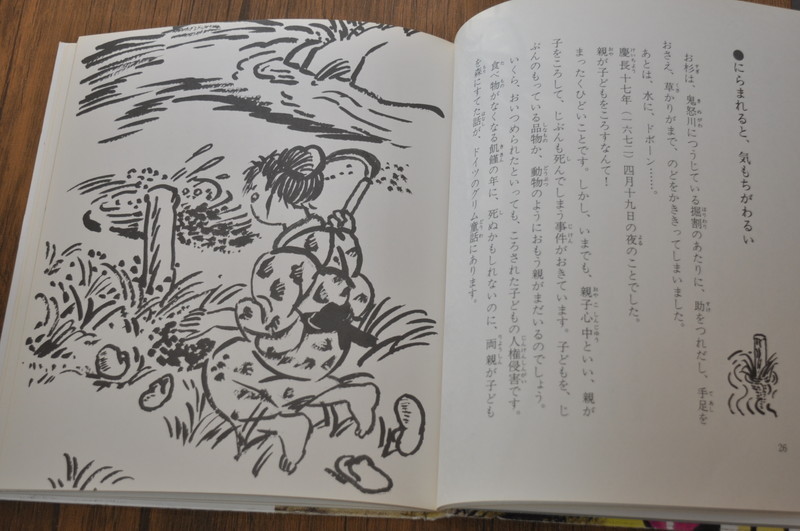 ●にらまれると、気もちがわるい
お杉は、鬼怒川につうじている掘割のあたりに、助をつれだし、手足を
おさえ、草かりがまで、のどをかききってしまいました。
あとは、水に、ドボーン……。
慶長十七年（一六七二）四月十九日の夜のことでした。
親が子どもをころすなんて！
まったくひどいことです。しかし、いまでも、親子心中といい、親が
子をころして、じぶんも死んでしまう事件がおきています。子どもを、じ
ぶんのもっている品物か、動物のようにおもう親がまだいるのでしょう。
いくら、おいつめられたといっても、ころされた子どもの人権侵害です。
食べ物がなくなる飢饉の年に、死ぬかもしれないのに、両親が子ども
を森にすてた話が、ドイツのグリム童話にあります。
26